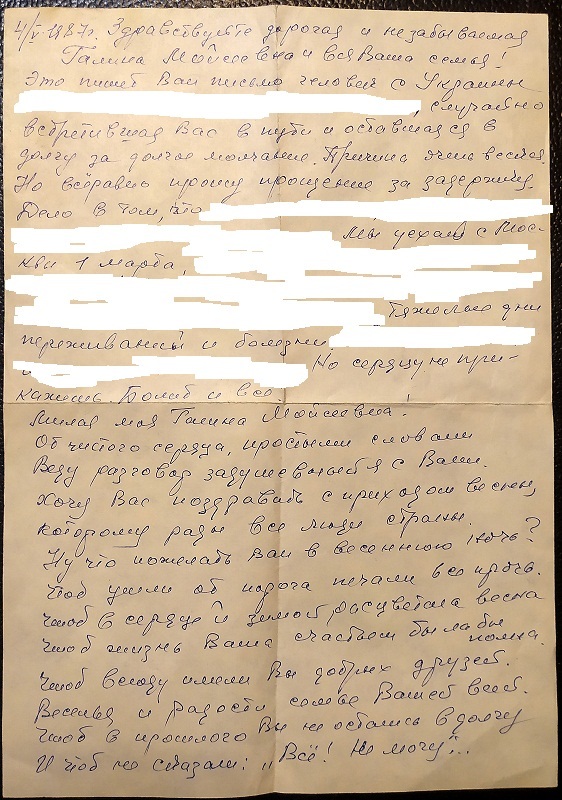 4/V-1987г. Здравствуйте дорогая и незабываемая
Галина Мойсеевна и вся Ваша семья!
Это пишет Вам письмо человек с Украины
, случайно
встретившая Вас в пути и оставшаяся в
долгу за долгое молчание. Причина очень веская.
Но всёравно прошу прощение за задержку.
Дело в том, что
Мы уехали с Мос-
квы 1 марта,
Тяжелые дни
переживаний и болезни
Но сердцу не при-
кажешь. Болит и всё.
Милая моя Галина Мойсеевна!
От чистого сердца, простыми словами
Веду разговор задушевный я с Вами.
Хочу Вас поздравить с приходом весны,
которому рады все люди страны.
Ну что пожелать Вам в весеннюю ночь?
Чтоб ушли от порога печали все прочь.
Чтоб в сердце и зимой расцветала весна
Чтоб жизнь Ваша счастьем была бы
полна.
Чтоб всюду имели Вы добрых друзей.
Веселья и радости семье Вашей всей.
Чтоб в прошлого Вы не остались в долгу
И чтоб не сказали: „Всё! Не могу"...